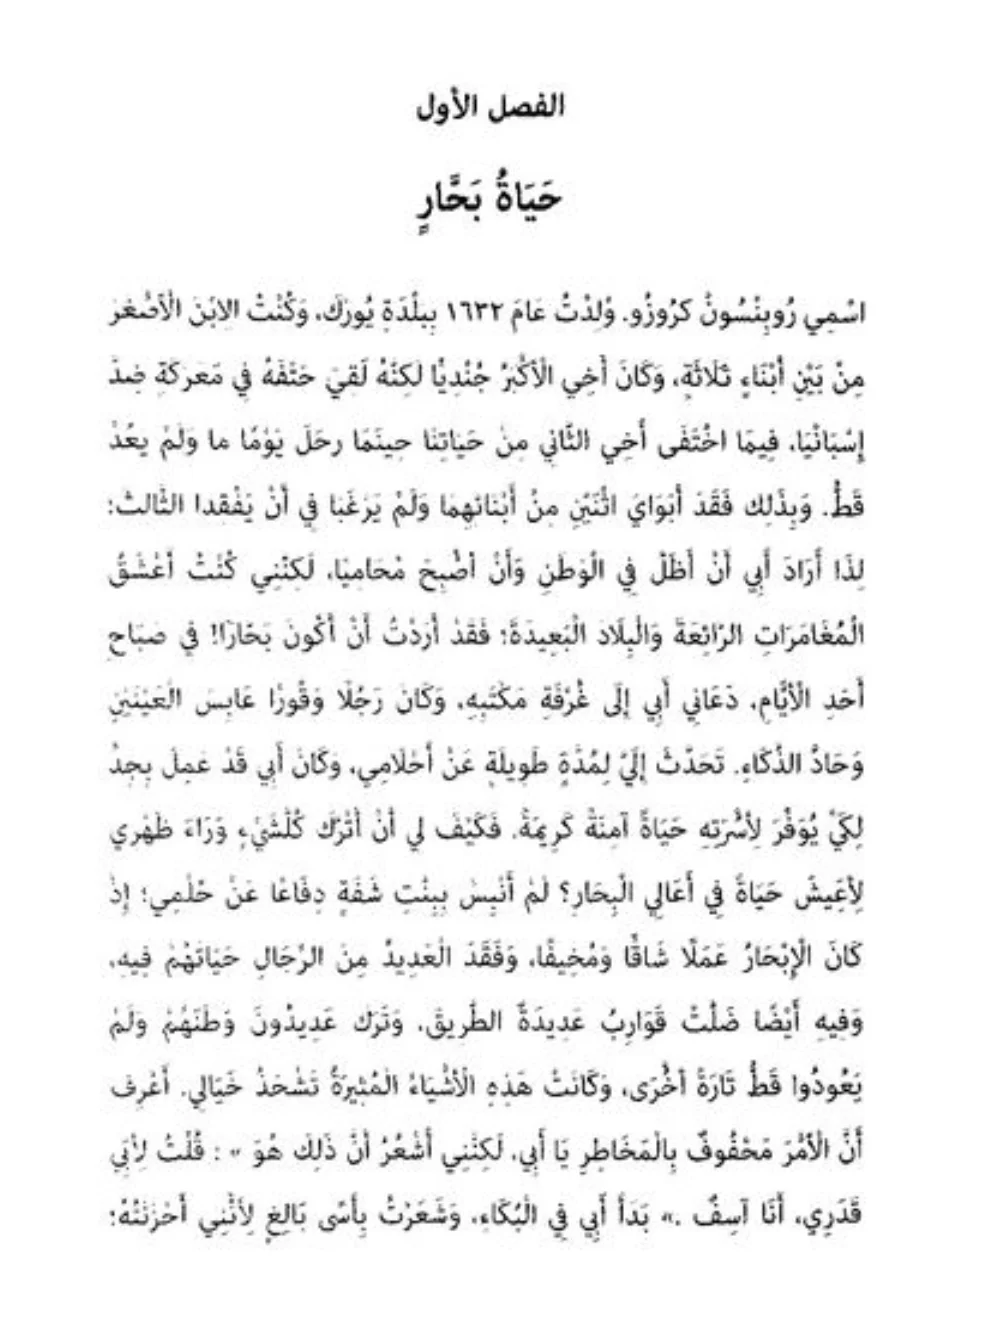 الفصل الأول
حَيَاةُ بَحَّارٍ
اسْمِي رُوبِنْسُونْ كرُوزُو. وُلِدْتُ عَامَ ١٦٣٢ بِبلْدَةِ يُورْك، وَكُنْتُ الِابْنَ الْأَصْغَرَ
مِنْ بَيْنِ أَبْنَاءٍ ثَلَاثَةٍ، وَكَانَ أَخِي الْأَكْبَرُ جُنْدِيًّا لَكِنَّهُ لَقِيَ حَتْفَهُ فِي مَعْرَكَةٍ ضِدَّ
إِسْبَانْيَا، فِيمَا اخْتَفَى أَخِي الثَّانِي مِنْ حَيَاتِنَا حِينَمَا رحَلَ يَوْمًا ما وَلَمْ يعُدْ
قَطُّ. وَبِذَلِك فَقَدَ أَبَوَايَ اثْنَيْنِ مِنْ أَبْنَائِهِمَا وَلَمْ يَرْغَبَا فِي أَنْ يَفْقِدا الثَّالثَ؛
لِذَا أَرَادَ أَبِي أَنْ أَظَلَّ فِي الْوَطَنِ وَأَنْ أُصْبِحَ مُحَامِيًا، لَكِنَّنِي كُنْتُ أَعْشَقُ
الْمُغَامَرَاتِ الرَّائِعَةَ وَالْبِلَادَ الْبَعِيدَةَ؛ فَقَدْ أَرَدْتُ أَنْ أَكُونَ بَحَّارًا! فِي صَبَاحِ
أَحَدِ الْأَيَّامِ، دَعَانِي أَبِي إِلَى غُرْفَةِ مَكْتَبِهِ، وَكَانَ رَجُلًا وَقُورًا عَابِسَ الْعَيْنَيْنِ
وَحَادَّ الذَّكَاءِ. تَحَدَّثَ إِلَيَّ لِمُدَّةٍ طَوِيلَةٍ عَنْ أَحْلَامِي، وَكَانَ أَبِي قَدْ عَمِلَ بِجِدٍّ
لِكَيْ يُوَفِّرَ لِأُسْرَتِهِ حَيَاةً آمِنَةً كَرِيمَةً. فَكَيْفَ لِي أَنْ أَتْرُك كُلَّشَيْءٍ وَرَاءَ ظَهْرِي
لِأَعِيشَ حَيَاةً فِي أَعَالِي الْبِحَارِ؟ لَمْ أَنْبِسْ بِبِنْتِ شَفَةٍ دِفَاعًا عَنْ حُلْمِي؛ إِذْ
كَانَ الْإِبْحَارُ عَمَلًا شَاقًّا وَمُخِيفًا، وَفَقَدَ الْعَدِيدُ مِنَ الرِّجَالِ حَيَاتَهُمْ فِيهِ،
وَفِيهِ أَيْضًا ضَلَّتْ قَوَارِبُ عَدِيدَةٌ الطَّرِيقَ، وَتَرَك عَدِيدُونَ وَطَنَهُمْ وَلَمْ
يَعُودُوا قَطُّ تَارَةً أُخْرَى، وَكَانَتْ هَذِهِ الْأَشْيَاءُ الْمُثِيرَةُ تَشْحَذُ خَيَالِي. أَعْرِفُ
أَنَّ الْأَمْرَ مَحْفُوفٌ بِالْمَخَاطِرِ يَا أَبِي، لَكِنَّنِي أَشْعُرُ أَنَّ ذَلِكَ هُوَ « : قُلْتُ لِأَبِي
قَدَرِي، أَنَا آسِفٌ .» بَدَأَ أَبِي فِي الْبُكَاءِ، وَشَعَرْتُ بِأَسًى بَالِغٍ لِأَنَّنِي أَحْزَنْتُهُ؛